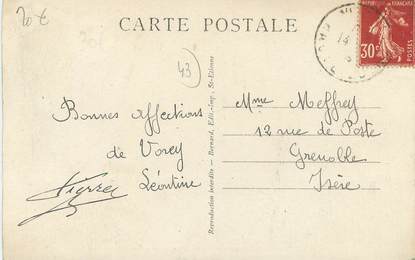 20 €
CARTE POSTALE
REPUBLIQUE FRANÇAISE
30c
POSTES
43
Bonnes affections
de Vorey
Léontine
Pierre
Reproduction interdite — Bernard, Edit.-Imp., St-Etienne
Mme Meffrey
12 rue de Poste
Grenoble
Isère